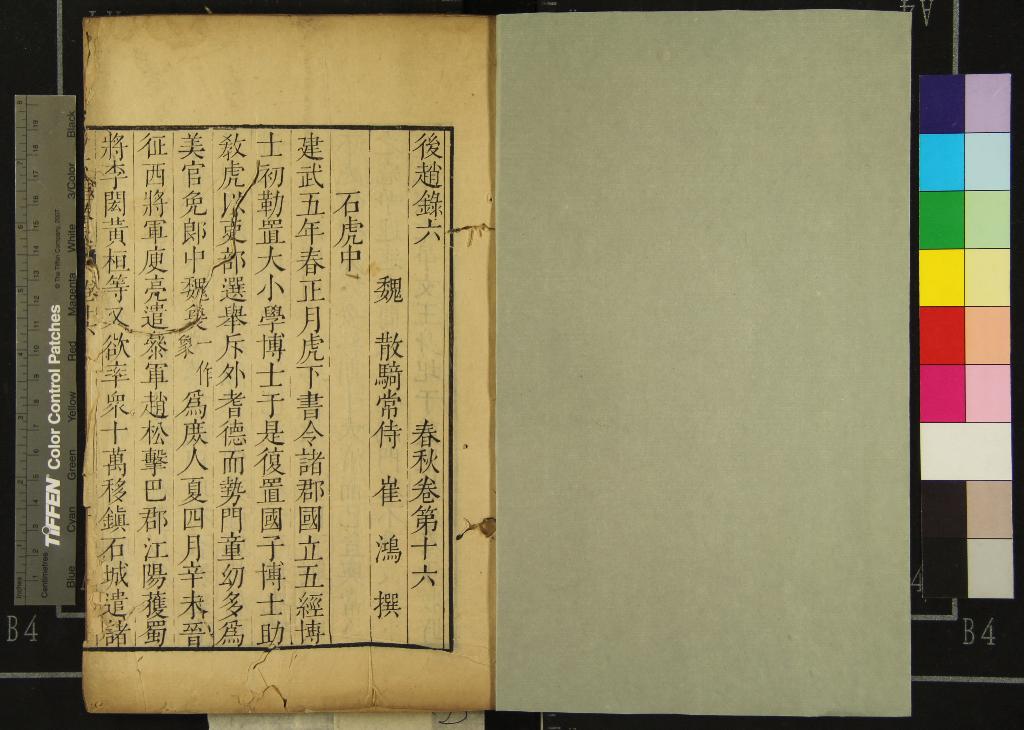 後趙錄六　春秋卷第十六
魏　散騎常侍　崔　鴻　撰
石虎中
建武五年春正月虎下書令諸郡國立五經博
士初勒置大小學博士于是復置國子博士助
教虎以吏部選舉斥外耆德而勢門童幼多爲
美官免郎中魏㚇一作象爲庶人夏四月辛未晉
征西將軍庾亮遣叅軍趙松擊巴郡江陽獲蜀
將李閎黃桓等又欲率衆十萬移鎭石城遣諸
TIFFEN Color Control Patches
© The Tiffen Company, 2007
Inches
Centimetres
Blue Cyan Green Yellow Red Magenta White 3/Color Black
B4
B4
A4